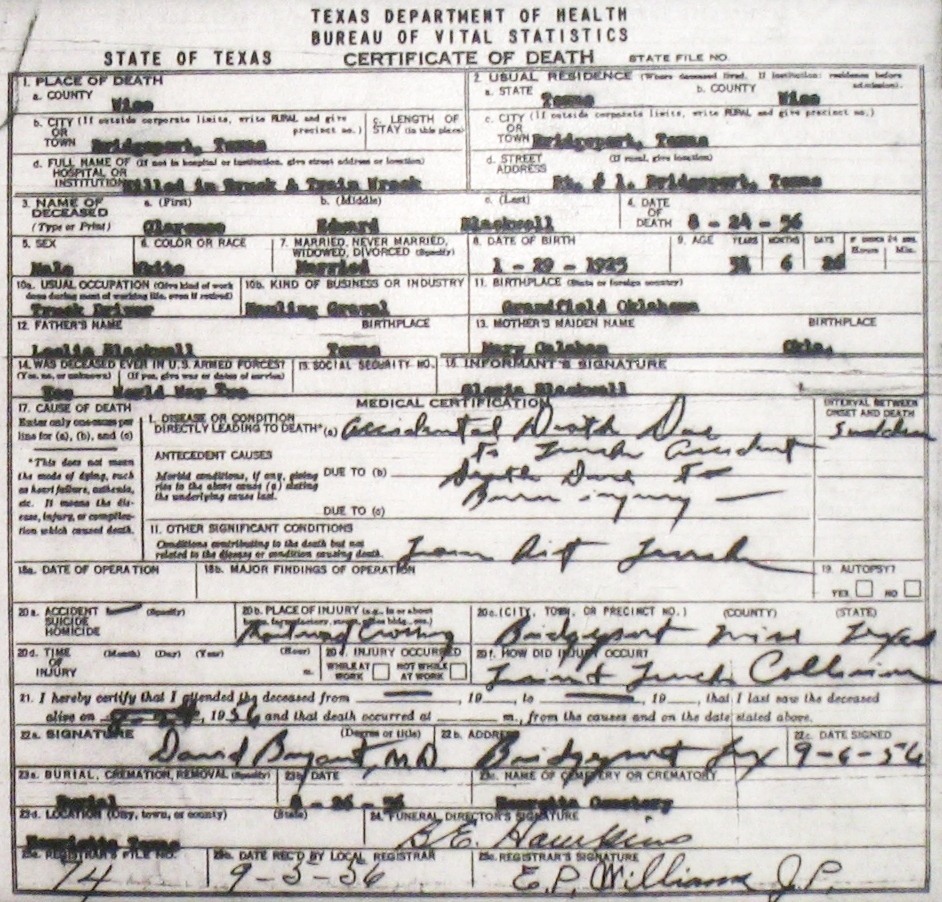 TEXAS DEPARTMENT OF HEALTH
BUREAU OF VITAL STATISTICS
STATE OF TEXAS CERTIFICATE OF DEATH STATE FILE NO.
1. PLACE OF DEATH
a. COUNTY
Wise
2. USUAL RESIDENCE (Where deceased lived. If institution: residence before admission).
a. STATE b. COUNTY
Texas Wise
b. CITY (If outside corporate limits, write RURAL and give
OR precinct no.)
TOWN Bridgeport, Texas
c. LENGTH OF
STAY (in this place)
c. CITY (If outside corporate limits, write RURAL and give precinct no.)
OR
TOWN Bridgeport, Texas
d. FULL NAME OF (If not in hospital or institution, give street address or location)
HOSPITAL OR
INSTITUTION Killed in Truck & Train Wreck
d. STREET (If rural, give location)
ADDRESS
Rt. # 1. Bridgeport, Texas
3. NAME OF a. (First) b. (Middle) c. (Last)
DECEASED
(Type or Print) Clarence Edward Blackwell
4. DATE
OF
DEATH 8 - 24 - 56
5. SEX
Male
6. COLOR OR RACE
White
7. MARRIED, NEVER MARRIED,
WIDOWED, DIVORCED (Specify)
Married
8. DATE OF BIRTH
1 - 29 - 1925
9. AGE YEARS MONTHS DAYS IF UNDER 24 HRS.
Hours Min.
31 6 26
10a. USUAL OCCUPATION (Give kind of work
done during most of working life, even if retired)
Truck Driver
10b. KIND OF BUSINESS OR INDUSTRY
Hauling Gravel
11. BIRTHPLACE (State or foreign country)
Grandfield Oklahoma
12. FATHER'S NAME BIRTHPLACE
Leslie Blackwell Texas
13. MOTHER'S MAIDEN NAME BIRTHPLACE
Mary Okla.
14. WAS DECEASED EVER IN U.S. ARMED FORCES?
(Yes, no, or unknown) (If yes, give war or dates of service)
Yes World War Two
15. SOCIAL SECURITY NO.
16. INFORMANT'S SIGNATURE
Gloria Blackwell
MEDICAL CERTIFICATION
17. CAUSE OF DEATH
Enter only one cause per
line for (a), (b), and (c)
*This does not mean
the mode of dying, such
as heart failure, asthenia,
etc. It means the dis-
ease, injury, or complica-
tion which caused death.
I. DISEASE OR CONDITION
DIRECTLY LEADING TO DEATH* (a) Accidental Death Due
To Truck Accident
ANTECEDENT CAUSES
Morbid conditions, if any, giving
rise to the above cause (a) stating
the underlying cause last.
DUE TO (b) Death Due To
Burn injury
DUE TO (c)
INTERVAL BETWEEN
ONSET AND DEATH
Sudden
11. OTHER SIGNIFICANT CONDITIONS
Conditions contributing to the death but not
related to the disease or condition causing death.
Train hit Truck
18a. DATE OF OPERATION
18b. MAJOR FINDINGS OF OPERATION
19. AUTOPSY?
YES NO
20a. ACCIDENT (Specify)
SUICIDE
HOMICIDE
20b. PLACE OF INJURY (e.g., in or about
home, farm, factory, street, office bldg., etc.)
Railroad Crossing
20c. (CITY, TOWN, OR PRECINCT NO.) (COUNTY) (STATE)
Bridgeport Wise Texas
20d. TIME (Month) (Day) (Year) (Hour)
OF
INJURY m.
20e. INJURY OCCURRED
WHILE AT WORK NOT WHILE AT WORK
20f. HOW DID INJURY OCCUR?
Train & Truck Collision
21. I hereby certify that I attended the deceased from , 19 to , 19 , that I last saw the deceased
alive on , 1956 and that death occurred at m., from the causes and on the date stated above.
22a. SIGNATURE (Degree or title)
David Bryant, M.D.
22b. ADDRESS
Bridgeport Tex
22c. DATE SIGNED
9-6-56
23a. BURIAL, CREMATION, REMOVAL (Specify)
Burial
23b. DATE
8 - 26 - 56
23c. NAME OF CEMETERY OR CREMATORY
Henrietta Cemetery
23d. LOCATION (City, town, or county) (State)
Henrietta Texas
24. FUNERAL DIRECTOR'S SIGNATURE
B.E. Hawkins
25a. REGISTRAR'S FILE NO.
74
25b. DATE REC'D BY LOCAL REGISTRAR
9-5-56
25c. REGISTRAR'S SIGNATURE
E.P. Williams J.P.